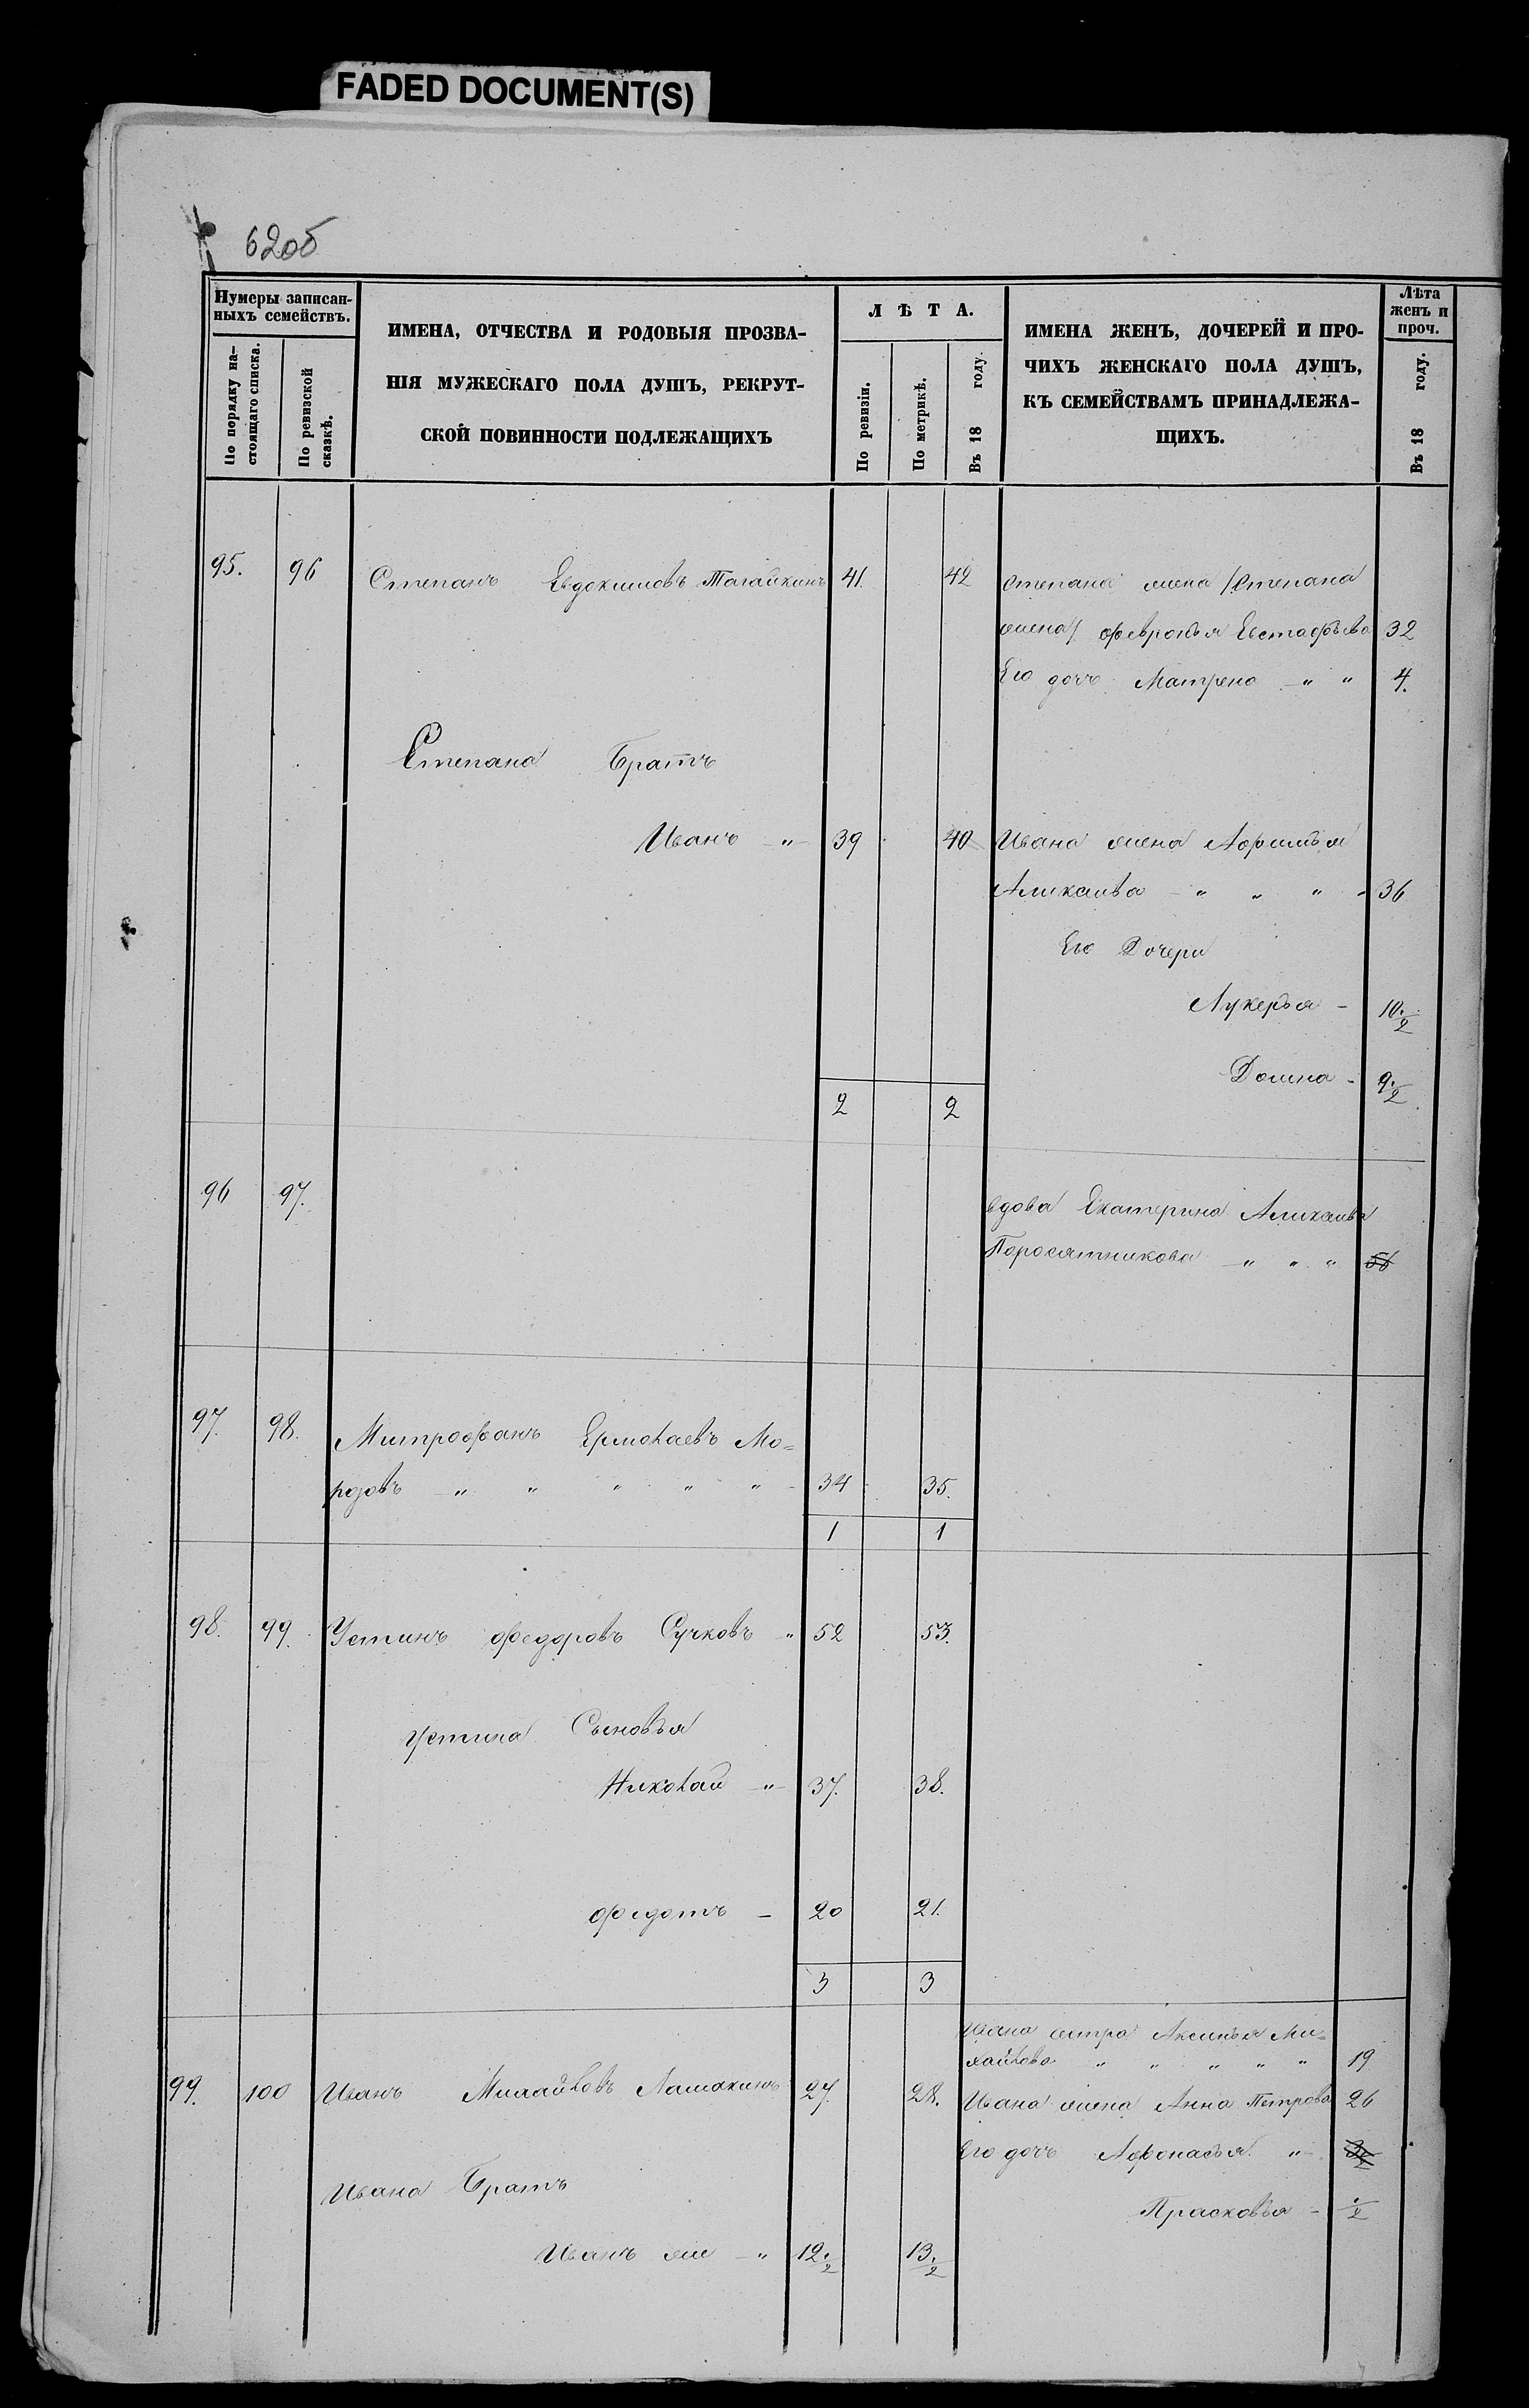 FADED DOCUMENT(S)
62об
Нумеры записан-
ныхъ семействъ.
По порядку на-
стоящаго списка.
По ревизской
сказкѣ.
ИМЕНА, ОТЧЕСТВА И РОДОВЫЯ ПРОЗВА-
НІЯ МУЖЕСКАГО ПОЛА ДУШЪ, РЕКРУТ-
СКОЙ ПОВИННОСТИ ПОДЛЕЖАЩИХЪ
ЛѢТА.
По ревизіи.
По метрикѣ.
Въ 18 году.
ИМЕНА ЖЕНЪ, ДОЧЕРЕЙ И ПРО-
ЧИХЪ ЖЕНСКАГО ПОЛА ДУШЪ,
КЪ СЕМЕЙСТВАМЪ ПРИНАДЛЕЖА-
ЩИХЪ.
Лѣта
женъ и
проч.
Въ 18 году.
95. 96 Степанъ Евдокимовъ Тагайкинъ 41. 42 Степана жена /Степана
жена/ Февронья Евстафьева 32
Его дочь Матрена - " " 4.
Степана Братъ
Иванъ - " - 39 40 Ивана жена Афимья
- " " " - 36
Его Дочери
Лукерья - 10./2
Домна - 9./2
2 2
96 97. вдова Екатерина
Поросятникова - " " " 56
97. 98. Митрофанъ Ермолаевъ Мо=
рдовъ - " " " " " - 34 35.
1 1
98. 99. Устинъ Федоровъ Сучковъ - " 52 53.
Устина Сыновья
Николай - " - 37. 38.
Федотъ - 20 21.
3 3
Ивана сестра Аксинья Ми=
хайлова " " " " " 19
99. 100 Иванъ Михайловъ Ломакинъ 27. 28. Ивана жена Анна Петрова 26
Его дочь Афонасья "
Ивана Братъ
Прасковья - ./2
Иванъ же - " 12./2 13./2